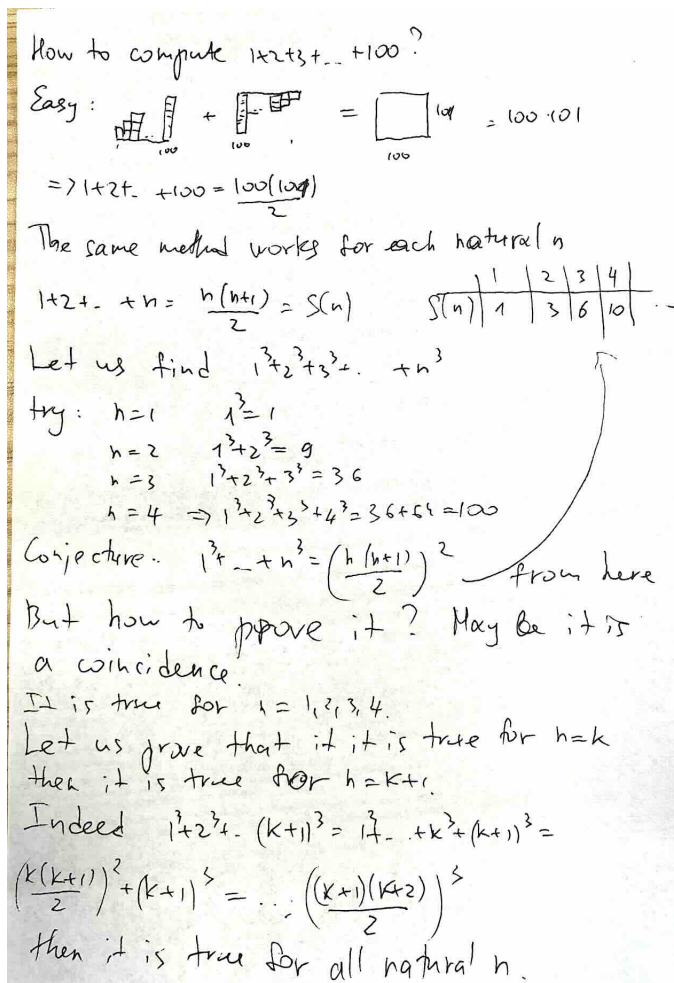 How to compute 1+2+3+... +100?
Easy:
100 + 100 = 100 101 = 100·101
=> 1+2+.. +100 = 100(101)/2
The same method works for each natural n
1+2+.. +n = n(n+1)/2 = S(n)
1 | 2 | 3 | 4
S(n) | 1 | 3 | 6 | 10 | ...
Let us find 1³+2³+3³+.. +n³
try: n=1 1³=1
n=2 1³+2³=9
n=3 1³+2³+3³=36
n=4 => 1³+2³+3³+4³=36+64=100
Conjecture.. 1³+...+n³=(n(n+1)/2)² from here
But how to prove it? May be it is
a coincidence.
It is true for n=1,2,3,4.
Let us prove that if it is true for n=k
then it is true for n=k+1.
Indeed 1³+2³+.. (k+1)³ = 1³+...+k³+(k+1)³ =
(k(k+1)/2)²+(k+1)³ = ...; ((k+1)(k+2)/2)³
then it is true for all natural n.